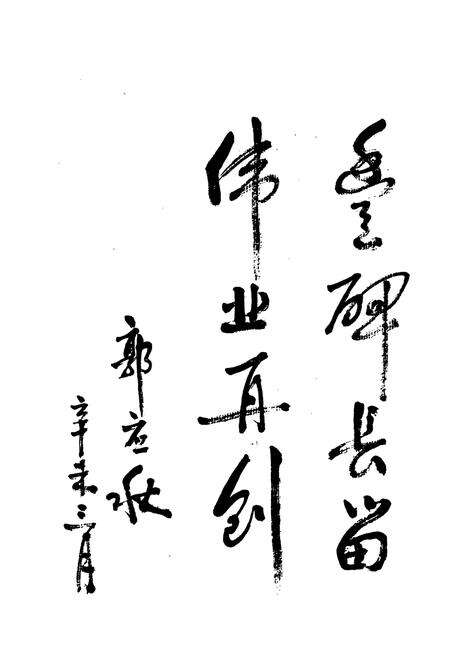 豊碑长留
伟业再创
郭应秋
辛未三月